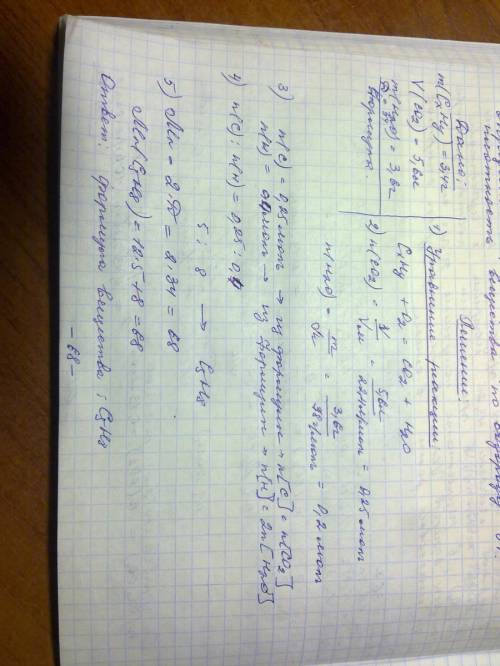 плотность вещества по водороду
Дано:
m(CxHy) = 3,4г
V(CO2) = 5,6л
m(H2O) = 3,6г
D = 34
Формула
Решение
1) Уравнение реакции
CxHy + O2 = CO2 + H2O
2) n(CO2) = V/Vм = 5,6л / = 0,25 моль
n(H2O) = m/M = 3,6г / 18г/моль = 0,2 моль
3) n(C) = 0,25 моль → из формулы → n[C] = n[CO2]
n(H) = 0,4 моль → из формулы → n[H] = 2n[H2O]
4) n(C) : n(H) = 0,25 : 0,4
5 : 8 → C5H8
5) Mr = 2·D = 2·34 = 68
Mr(C5H8) = 12·5+8 = 68
Ответ: формула вещества: C5H8
- 68 -